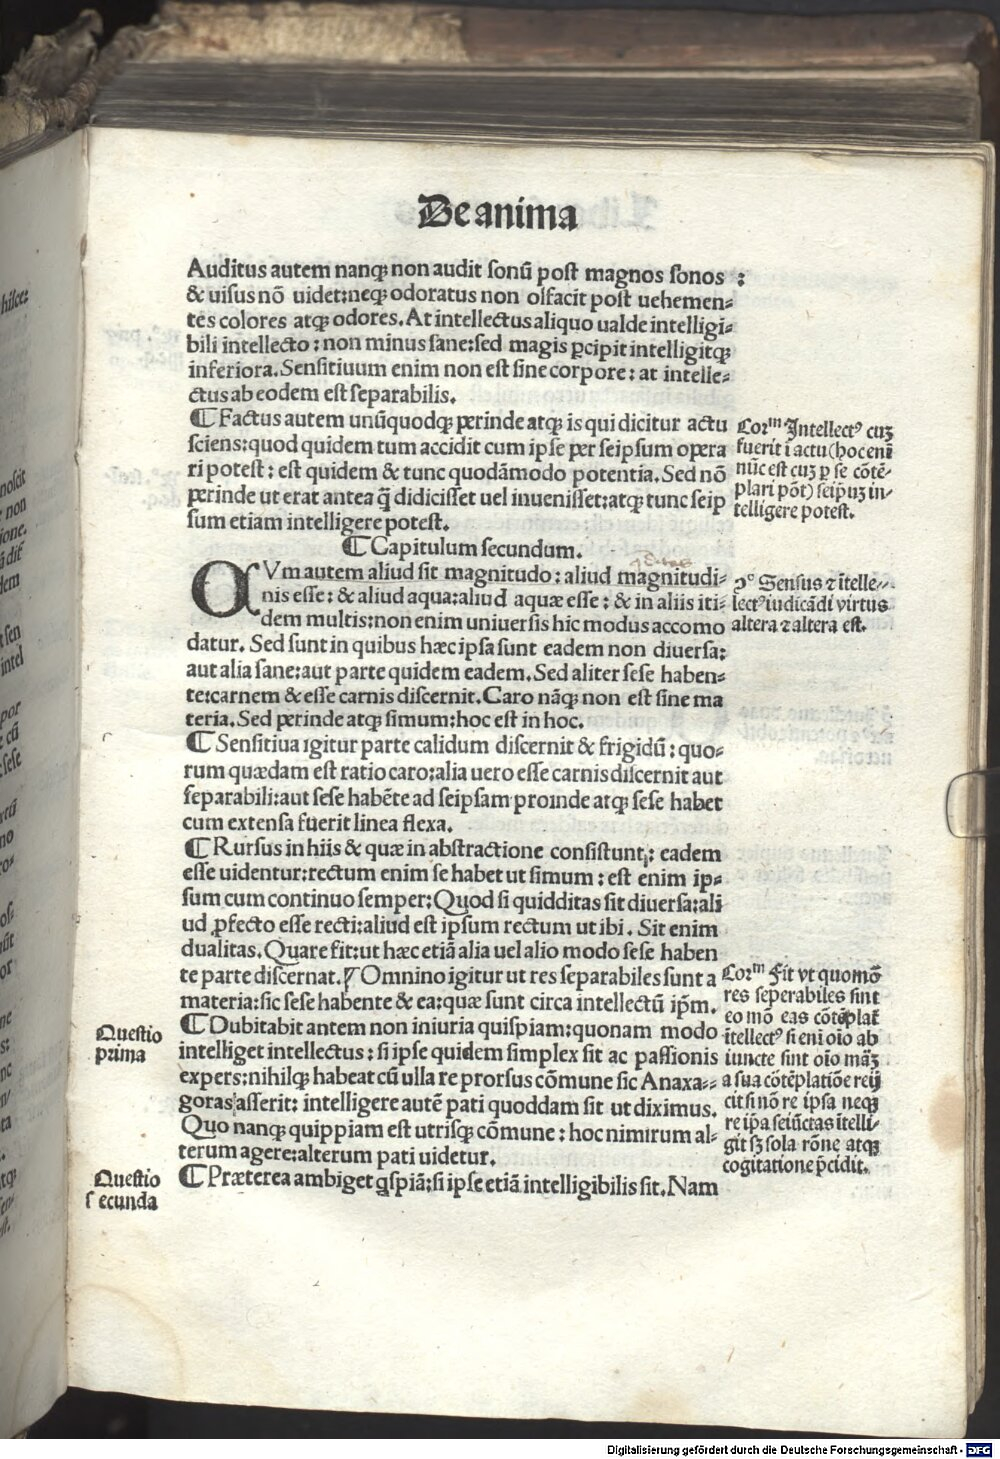 De anima
Auditus autem nanqꝫ non audit sonū post magnos sonos :
& uisus nō uidet:neqꝫ odoratus non olfacit post uehemen⸗
tes colores atqꝫ odores. At intellectus aliquo ualde intelligi⸗
bili intellecto : non minus sane:sed magis ꝑcipit intelligitqꝫ
inferiora. Sensitiuum enim non est sine corpore: at intelle⸗
ctus ab eodem est separabilis.
¶ Factus autem unūquodqꝫ perinde atqꝫ is qui dicitur actu
sciens:quod quidem tum accidit cum ipse per seipsum opera
ri potest: est quidem & tunc quodāmodo potentia. Sed nō
perinde ut erat antea q̄ didicisset uel inuenisset:atqꝫ tunc seip
sum etiam intelligere potest.
Corᵐ Intellectꝰ cuꝫ
fuerit ī actu (hoc enī
nūc est cuꝫ ꝑ se cōtē⸗
plari pōt) seipuꝫ in⸗
telligere potest.
¶ Capitulum secundum.
QVm autem aliud sit magnitudo: aliud magnitudi⸗
nis esse: & aliud aqua:aliud aquæ esse: & in aliis iti⸗
dem multis:non enim uniuersis hic modus accomo
datur. Sed sunt in quibus hæc ipsa sunt eadem non diuersa:
aut alia sane:aut parte quidem eadem. Sed aliter sese haben⸗
te:carnem & esse carnis discernit. Caro nāqꝫ non est sine ma
teria. Sed perinde atqꝫ simum:hoc est in hoc.
2º Sensus ⁊ ītelle⸗
lectꝰ iudicādi virtus
altera ⁊ altera est.
¶ Sensitiua igitur parte calidum discernit & frigidū: quo⸗
rum quædam est ratio caro:alia uero esse carnis discernit aut
separabili:aut sese habēte ad seipsam proinde atqꝫ sese habet
cum extensa fuerit linea flexa.
¶ Rursus in hiis & quæ in abstractione consistunt: eadem
esse uidentur:rectum enim se habet ut simum: est enim ip⸗
sum cum continuo semper: Quod si quidditas sit diuersa:ali
ud ꝓfecto esse recti:aliud est ipsum rectum ut ibi. Sit enim
dualitas. Quare fit:ut hæc etiā alia uel alio modo sese haben
te parte discernat. Omnino igitur ut res separabiles sunt a
materia:sic sese habente & ea:quæ sunt circa intellectū ip̄m.
Corᵐ Fit vt quomō
res seperabiles sint
eo mō eas cōtēplat̄
ītellectꝰ si eni oīo ab
iuncte sint oīo māꝫ
a sua cōtēplatiōe reij
cit si nō re ipsa neqꝫ
re ip̄a seiūctas ītelli⸗
git sꝫ sola rōne atqꝫ
cogitatione p̄cidit.
Questio
prima
¶ Dubitabit antem non iniuria quispiam:quonam modo
intelliget intellectus: si ipse quidem simplex sit ac passionis
expers:nihilqꝫ habeat cū ulla re prorsus cōmune sic Anaxa⸗
goras asserit: intelligere autē pati quoddam sit ut diximus.
Quo nanqꝫ quippiam est utrisqꝫ cōmune: hoc nimirum al⸗
terum agere:alterum pati uidetur.
Questio
secunda
¶ Præterea ambiget qͣspiā:si ipse etiā intelligibilis sit. Nam
Digitalisierung gefördert durch die Deutsche Forschungsgemeinschaft - DFG